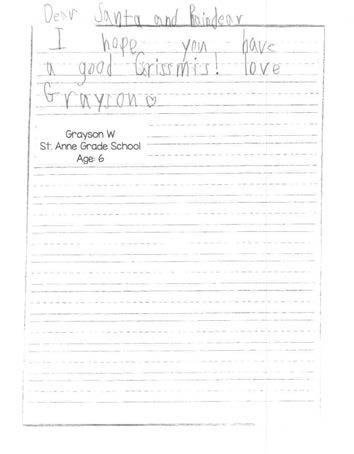 Dear Santa and Raindear
I hope you have
a good Crissmis! love
Grayson
Grayson W
St. Anne Grade School
Age: 6